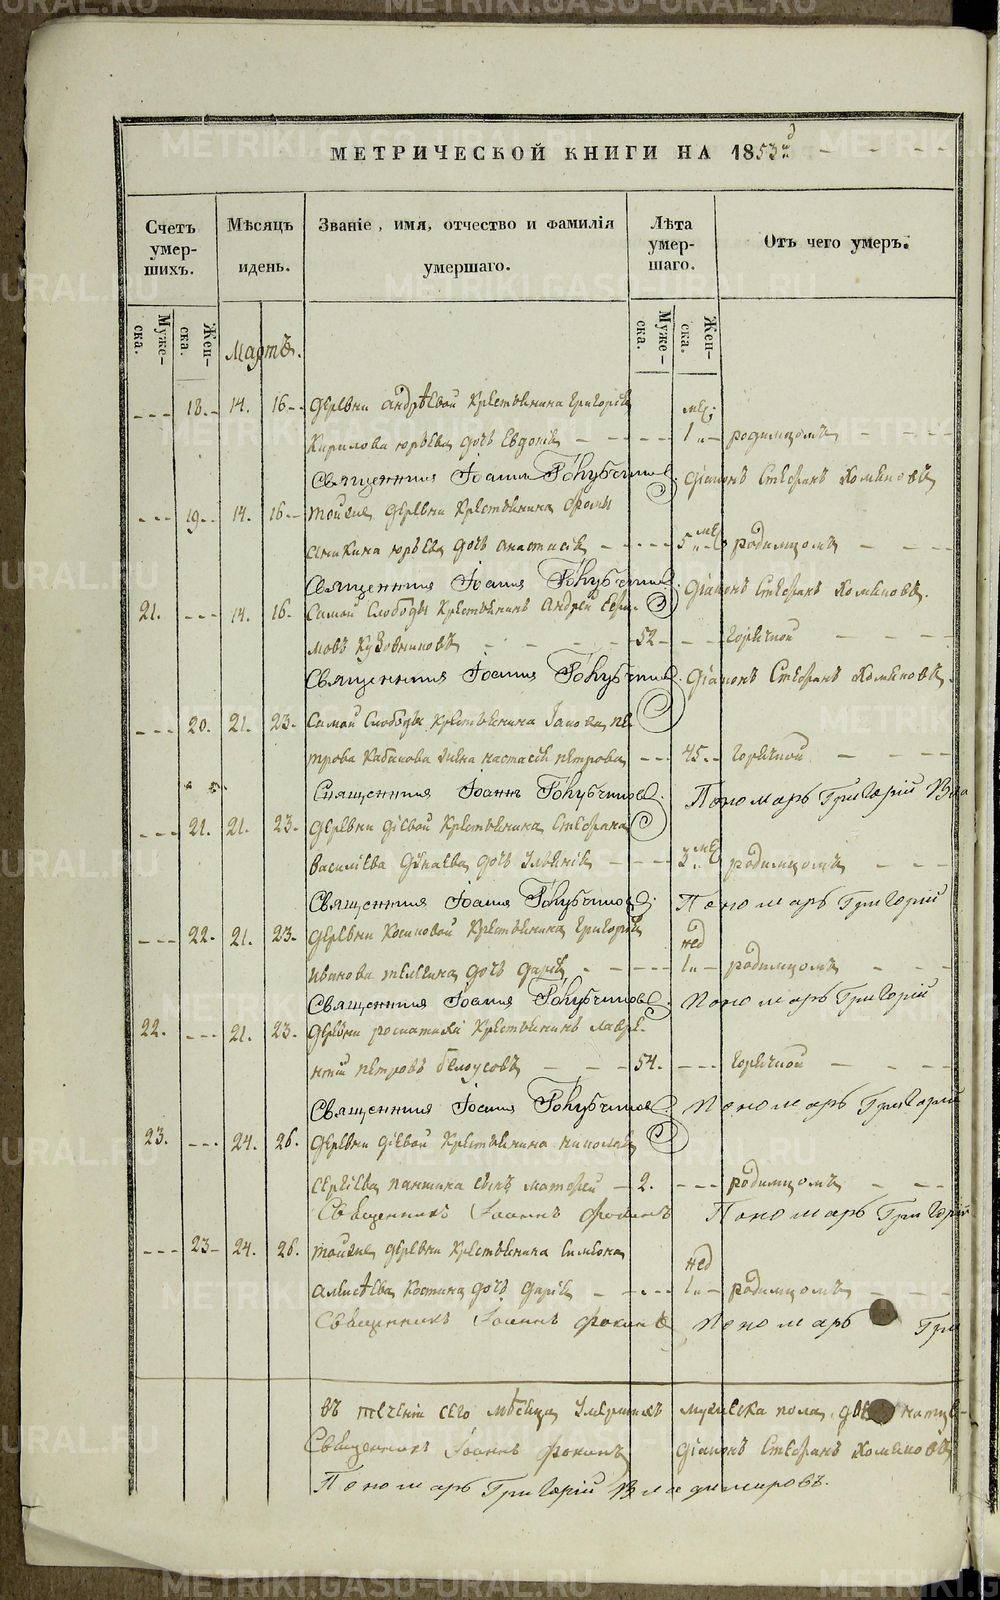 МЕТРИЧЕСКОЙ КНИГИ НА 1853 й
Счетъ умер- шихъ.
Мѣсяцъ и день.
Званіе, имя, отчество и фамилія умершаго.
Лѣта умер- шаго.
Отъ чего умеръ.
Муже- ска.
Жен- ска.
Мартъ.
Муже- ска.
Жен- ска.
18. 14. 16 Деревни Андрѣевой Крестьянина Григорія мец;
Кирилова Юрьева дочь Евдокія 1 родимцомъ
Священник Іоанн Голубчиков. Діаконъ Стефанъ Хомяковъ
19 14. 16 Тойже деревни Крестьянина Фомы
Аникина Юрьева дочь Анастасія 5 мец родимцомъ
Священник Іоанн Голубчиков. Діаконъ Стефанъ Хомяковъ.
21. 14. 16. Самой Слободы Крестьянинъ Андрей
мовъ Кузовниковъ 52 Горячкой
Священник Іоанн Голубчиков. Діаконъ Стефанъ Хомяковъ.
20. 21. 23. Самой Слободы Крестьянина Іакова пе
трова Кабакова жена Настасія Петрова 45. Горячкой
Священник Іоаннъ Голубчиков. Пономарь Григорій
21. 21. 23. Деревни Діевой Крестьянина Стефана
Васильева дочь Ульянія 3 мец родимцомъ
Священник Іоанн Голубчиков. Пономарь Григорій
22. 21. 23. Деревни Косиковой Крестьянина Григорія нед
Иванова дочь Дарія 1 родимцомъ
Священник Іоанн Голубчиков. Пономарь Григорій
22. 21. 23. Деревни Крестьянинъ Лавре-
нтій Петровъ Белоусовъ 54. Горячкой
Священник Іоанн Голубчиков. Пономарь Григорій
23. 24. 26. Деревни Діевой Крестьянина Николая
Сергіева сынъ Матфей 2. родимцомъ
Священникъ Іоаннъ Фокинъ Пономарь Григорій
23 24. 26. Тойже деревни Крестьянина Симеона нед
Алексѣева Костина дочь Дарія 1 родимцомъ
Священникъ Іоаннъ Фокинъ Пономарь Гри
Въ теченіи сего мѣсяца умершихъ мужеска пола
Священникъ Іоаннъ Фокинъ Діаконъ Стефанъ Хомяковъ
Пономарь Григорій Владимировъ.
METRIKI.GASO-URAL.RU